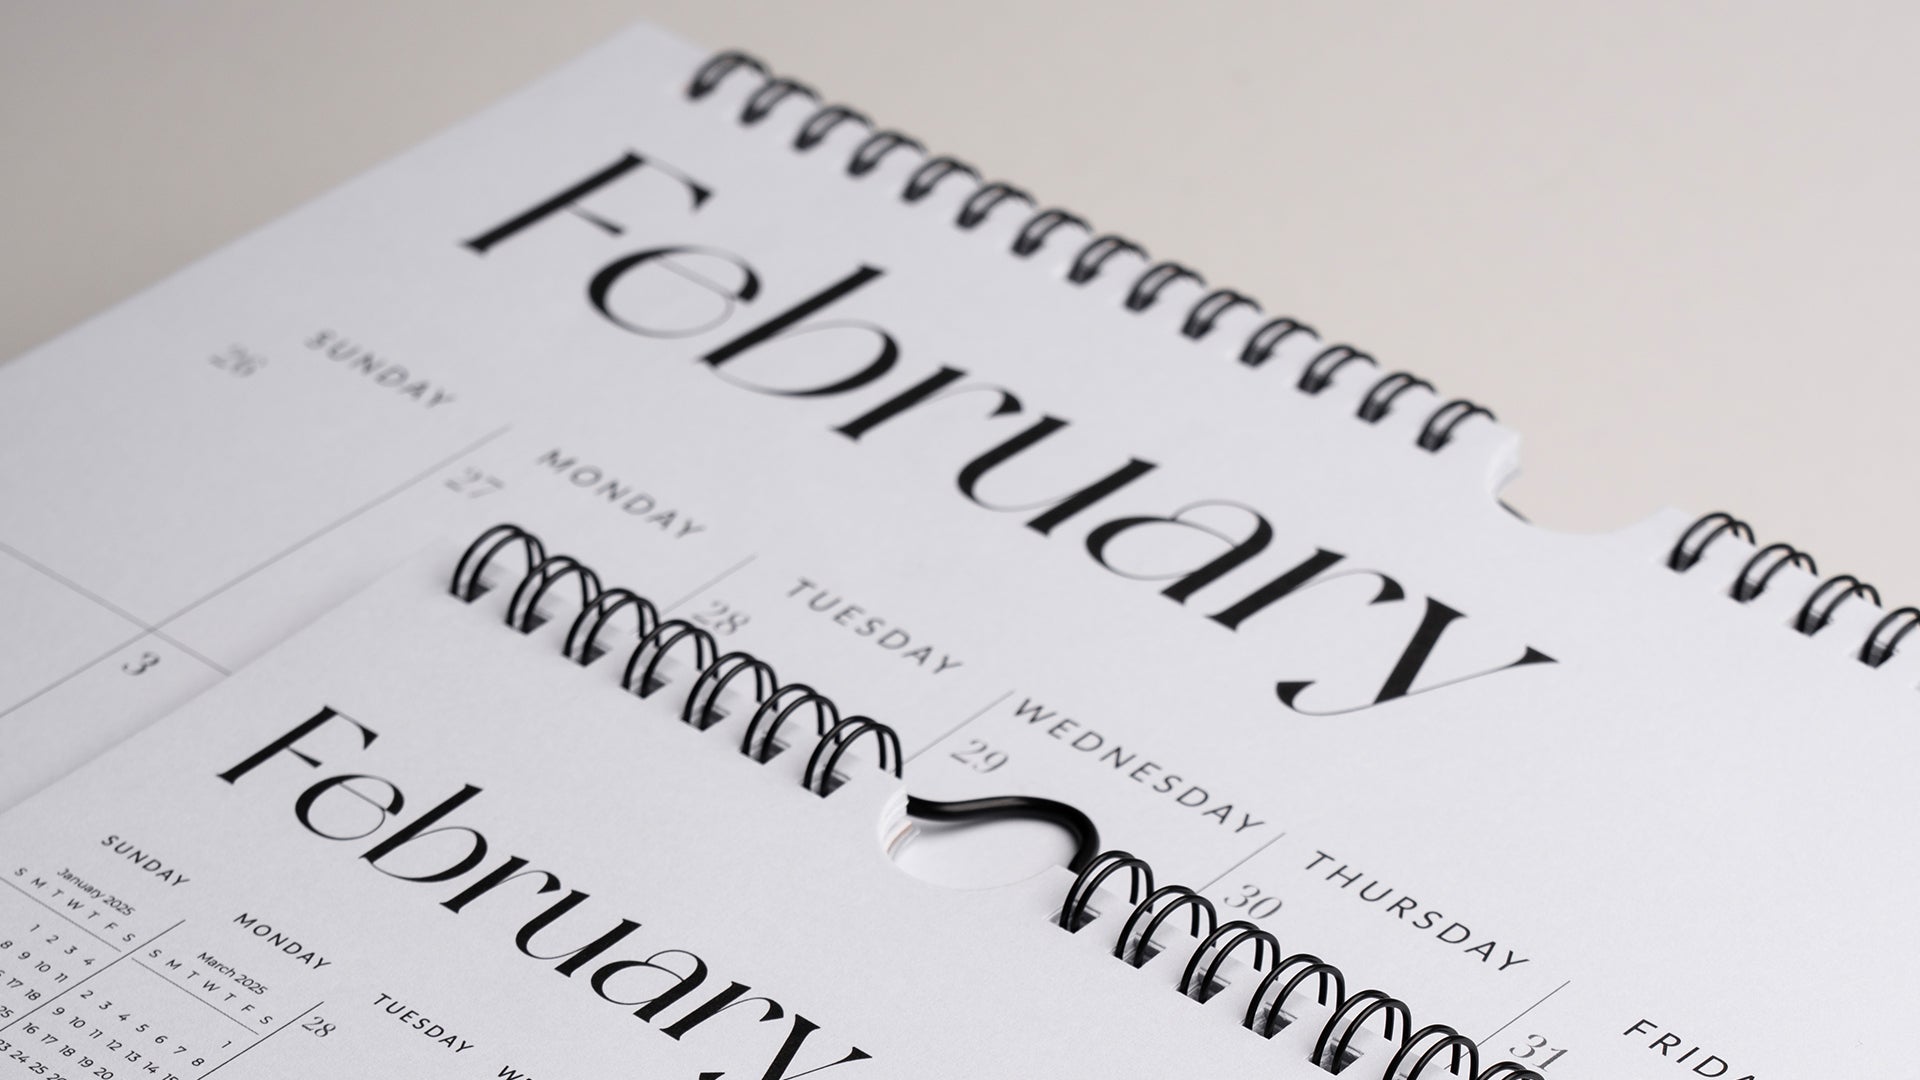 February
SUNDAY
MONDAY
TUESDAY
WEDNESDAY
THURSDAY
26
27
28
29
30
31
3
February
SUNDAY
MONDAY
TUESDAY
January 2025
S M T W T F S
1 2 3 4
8 9 10 11
17 18
25
March 2025
S M T W T F S
1
2 3 4 5 6 7 8
9 10 11 12 13 14
16 17 18 19 20
23 24 25
28